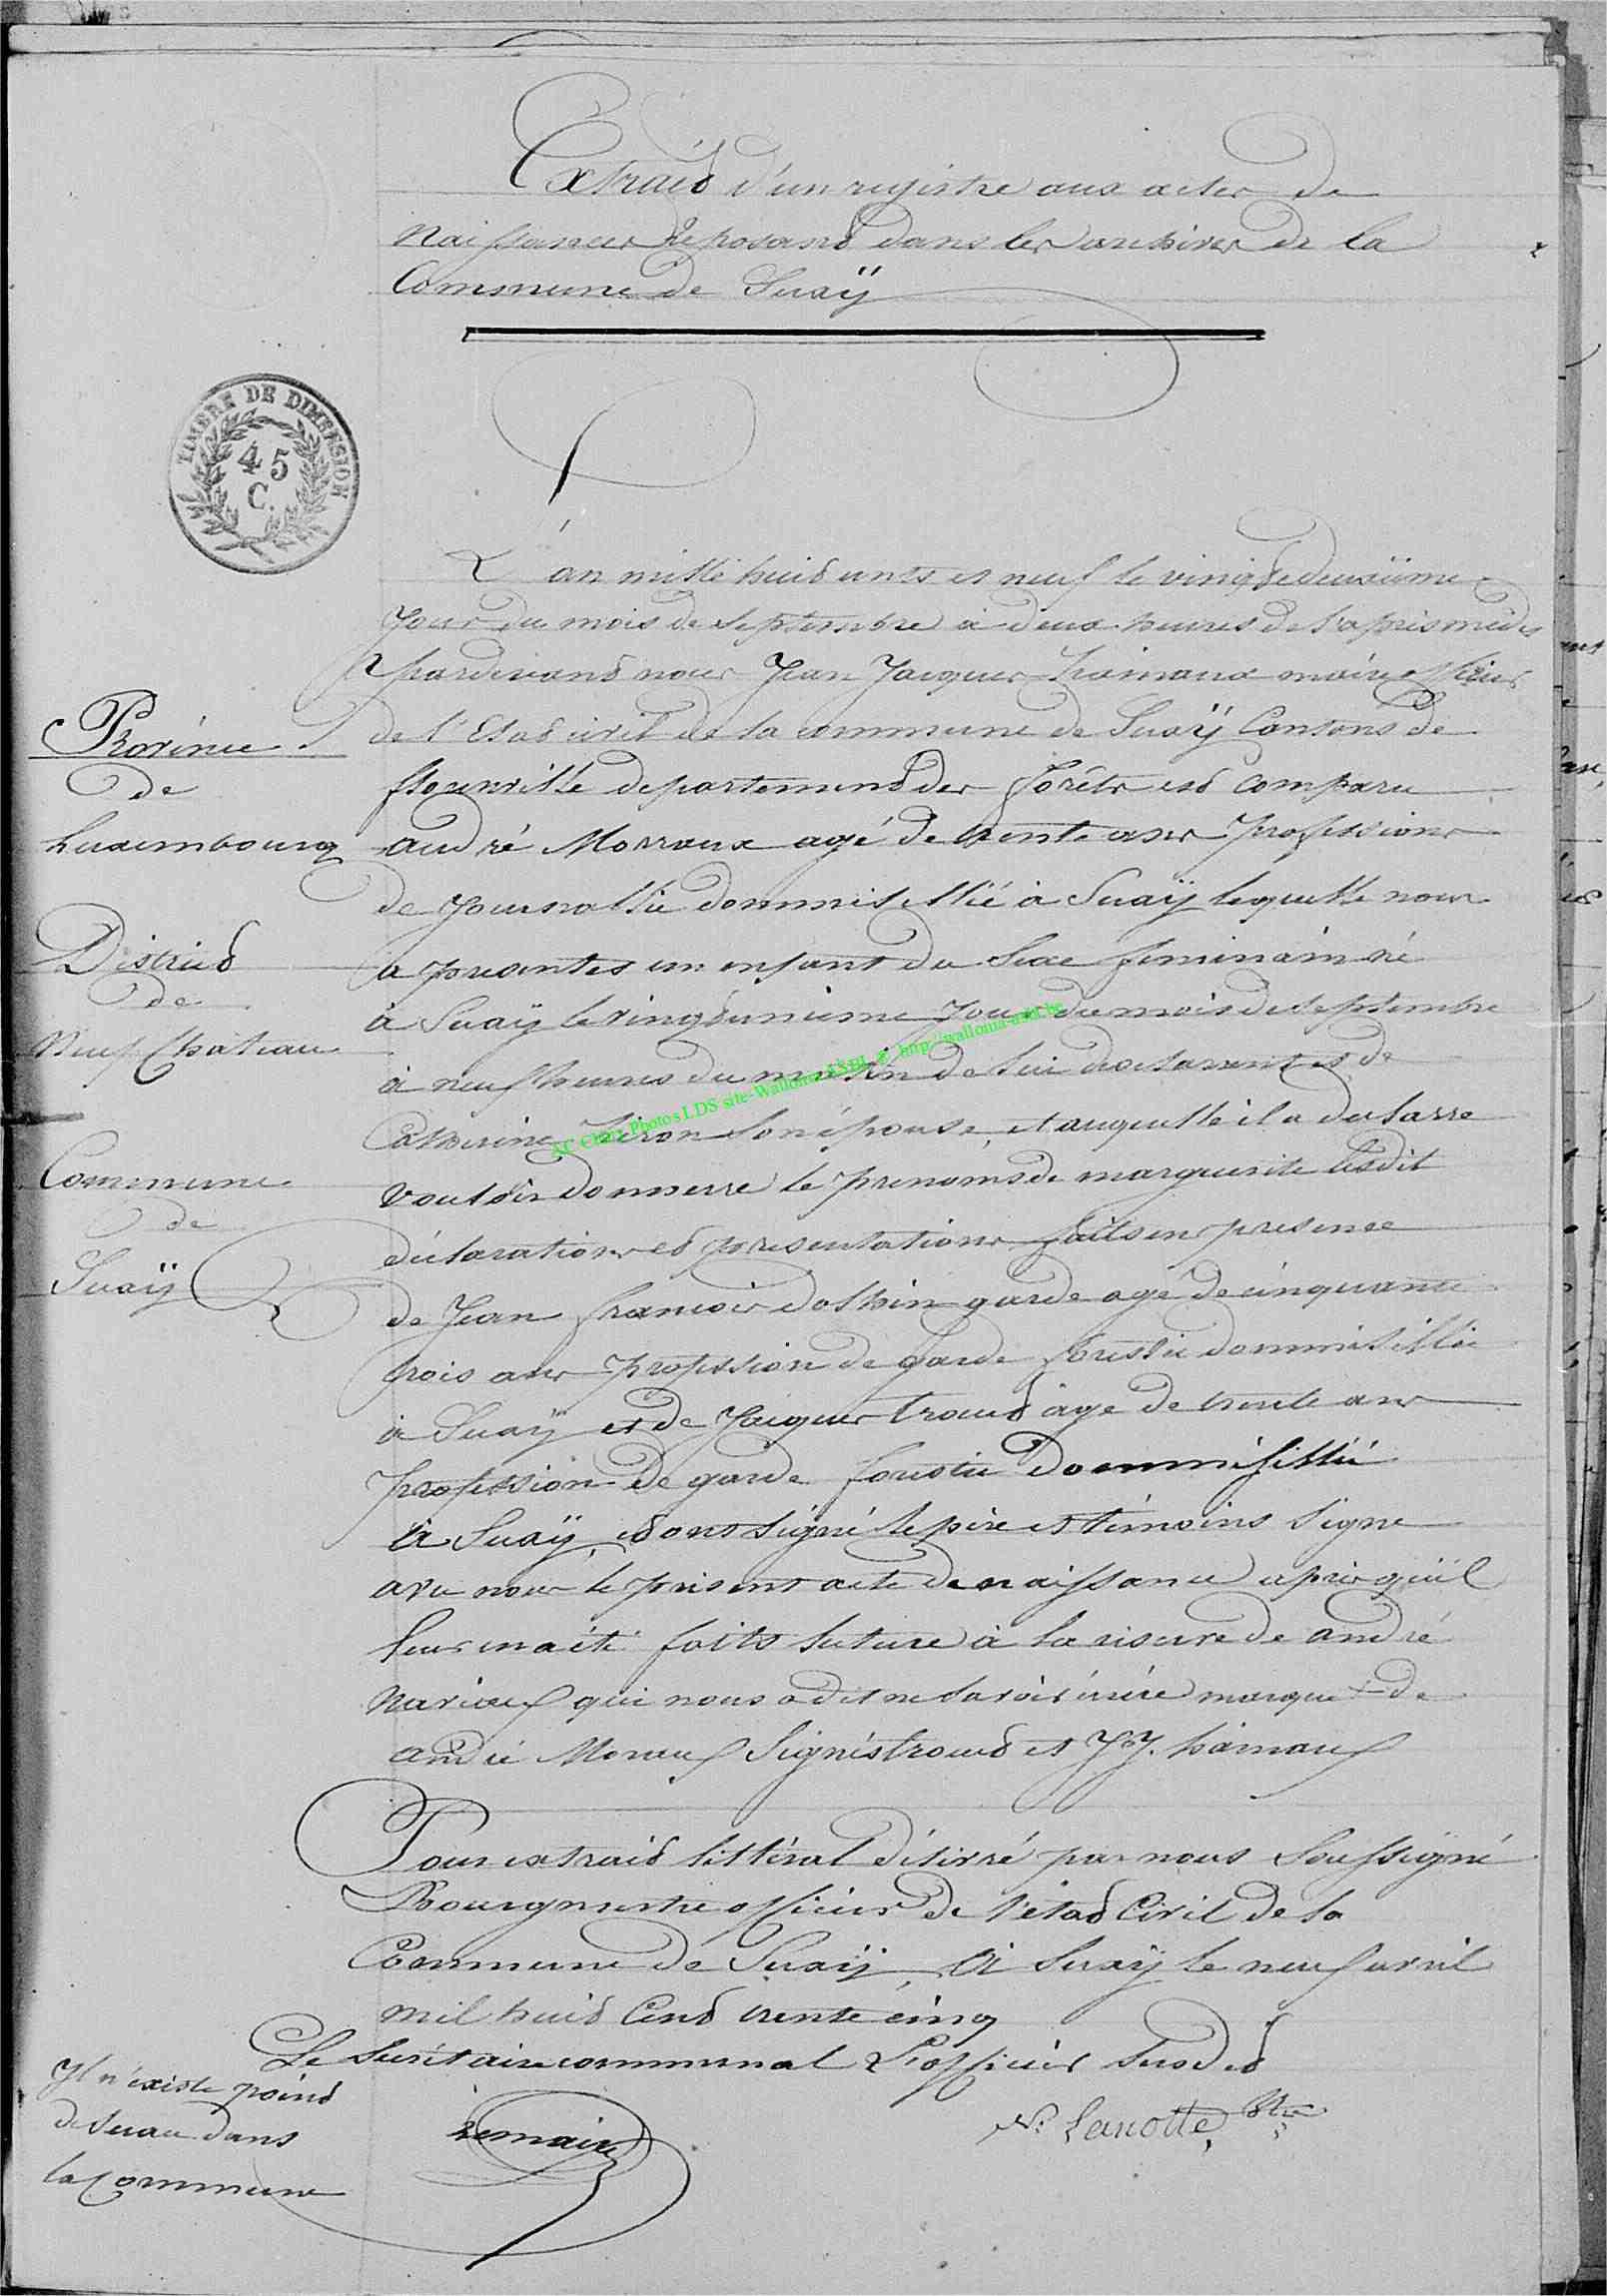 Extrait d'un registre aux actes de
Naissances reposant dans les archives de la
Commune de Suaÿ
TIMBRE DE DIMENSION
45
C.
L'an mille huit cents et neuf le vingt deuxiime
Jour du mois de Septembre à deux heures de l'apris midis
pardevant nous Jean Jacques hainaux maire officier
de l'Etat civil de la commune de Suaÿ Cantons de
florenville departement des forêts est comparu
andré Moraux agé de trente ans profession
de Journallié dommisillié à Suaÿ lequelle nous
a presentes un enfant du Sexe feminain né
à Suaÿ le vingt unieme Jour du mois de Septembre
à neuf heures du matin de lui declarant et de
Catherine son épouse, et auquelle il a declarre
vouloir donnerre le prenoms de marguerite lesdit
déclaration et presentation faits en presence
de Jean francois garde agé de cinquante
trois ans profession de garde forestié dommisillié
à Suaÿ et de Jacques trodet agé de trente ans
profession de garde forestié dommisillié
à Suaÿ, et ont signé le père et témoins signe
avec nous le present acte de naissance apris qu'il
leur en a été faits lecture à la riserve de andré
qui nous a dit ne savoir écrire marque + de
andré Moraux Signés et J.J. hainaux
Pour extrait littéral délivré par nous Soussigné
Bourgmestre officier de l'état Civil de la
Commune de Suaÿ, à Suaÿ le neuf avril
mil huit Cent trente cinq
Le Secrétaire communal L'officier Susdit
Lemaire
N. Lanotte,
Province
de
Luxembourg
District
de
Neufchateau
Commune
de
Suaÿ
Il n'existe point
de Sceau dans
la Commune
Photos LDS site-Wallonia ASBL @ http://wallonia-asbl.be